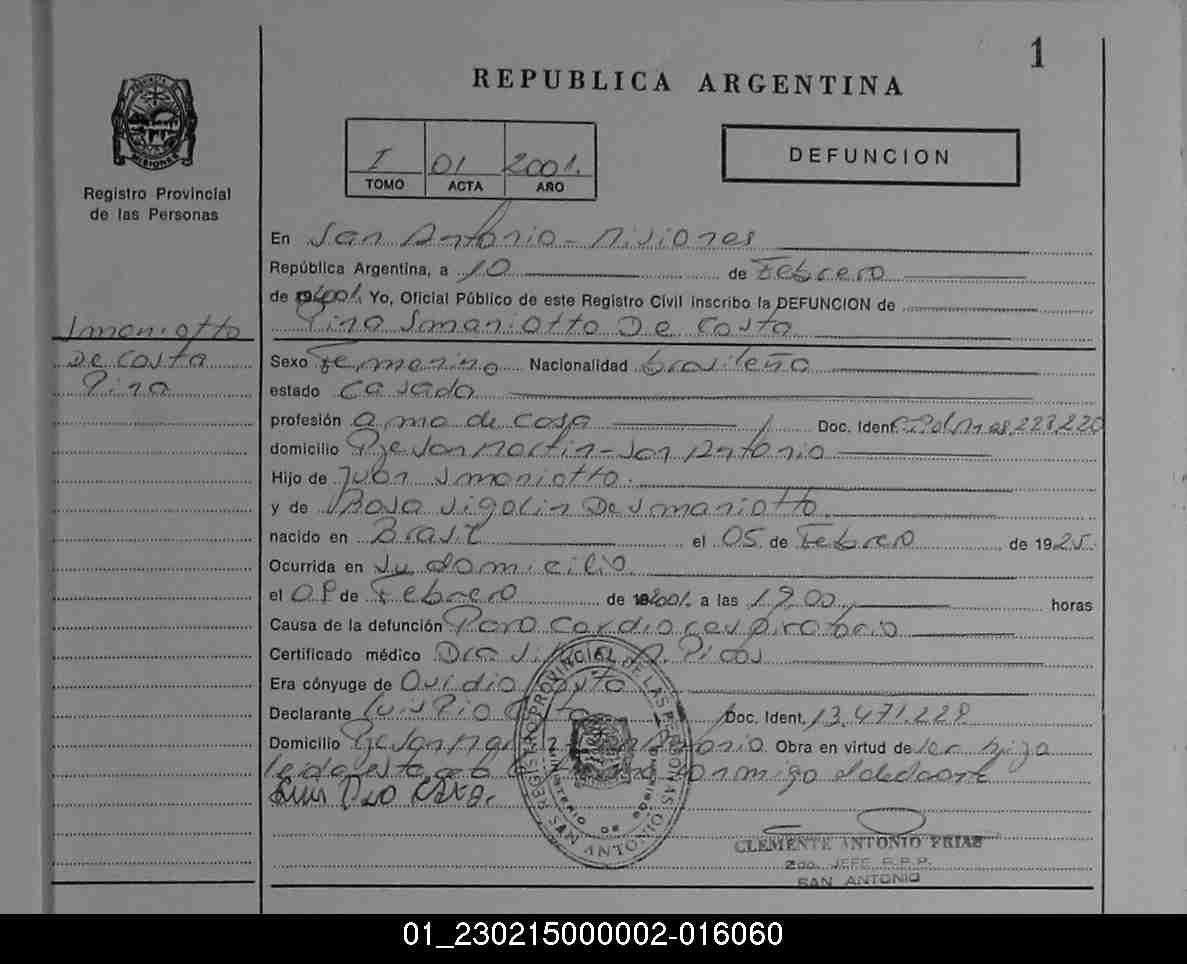 1
REPUBLICA ARGENTINA
PROVINCIA DE MISIONES
Registro Provincial
de las Personas
I 01 2001.
TOMO ACTA AÑO
DEFUNCION
Smaniotto
De Costa
Pina
En San Antonio - Misiones
República Argentina, a 10 de Febrero
de 2001. Yo, Oficial Público de este Registro Civil inscribo la DEFUNCION de
Pina Smaniotto De Costa
Sexo Femenino Nacionalidad brasileña
estado Casada
profesión ama de casa Doc. Ident. 223.220
domicilio Pje San Martin - San Antonio
Hijo de Juan Smaniotto.
y de Rosa Sigolin De Smaniotto.
nacido en Brasil el 05 de Febrero de 1925.
Ocurrida en su domicilio.
el de Febrero de 2001. a las 19,00 horas
Causa de la defunción Paro Cardiorespiratorio
Certificado médico Dra A. Picos
Era cónyuge de Ovidio Costa
Declarante Luis Pio Costa Doc. Ident. 13.471.228
Domicilio Pje San Martin San Antonio Obra en virtud de ser hijo
leida esta acta la firma conmigo el declarante
Luis Pio Costa.
REGISTRO PROVINCIAL DE LAS PERSONAS
MINISTERIO DE GOBIERNO
SAN ANTONIO
CLEMENTE ANTONIO FRIAS
2do. JEFE R.P.P.
SAN ANTONIO
01_230215000002-016060